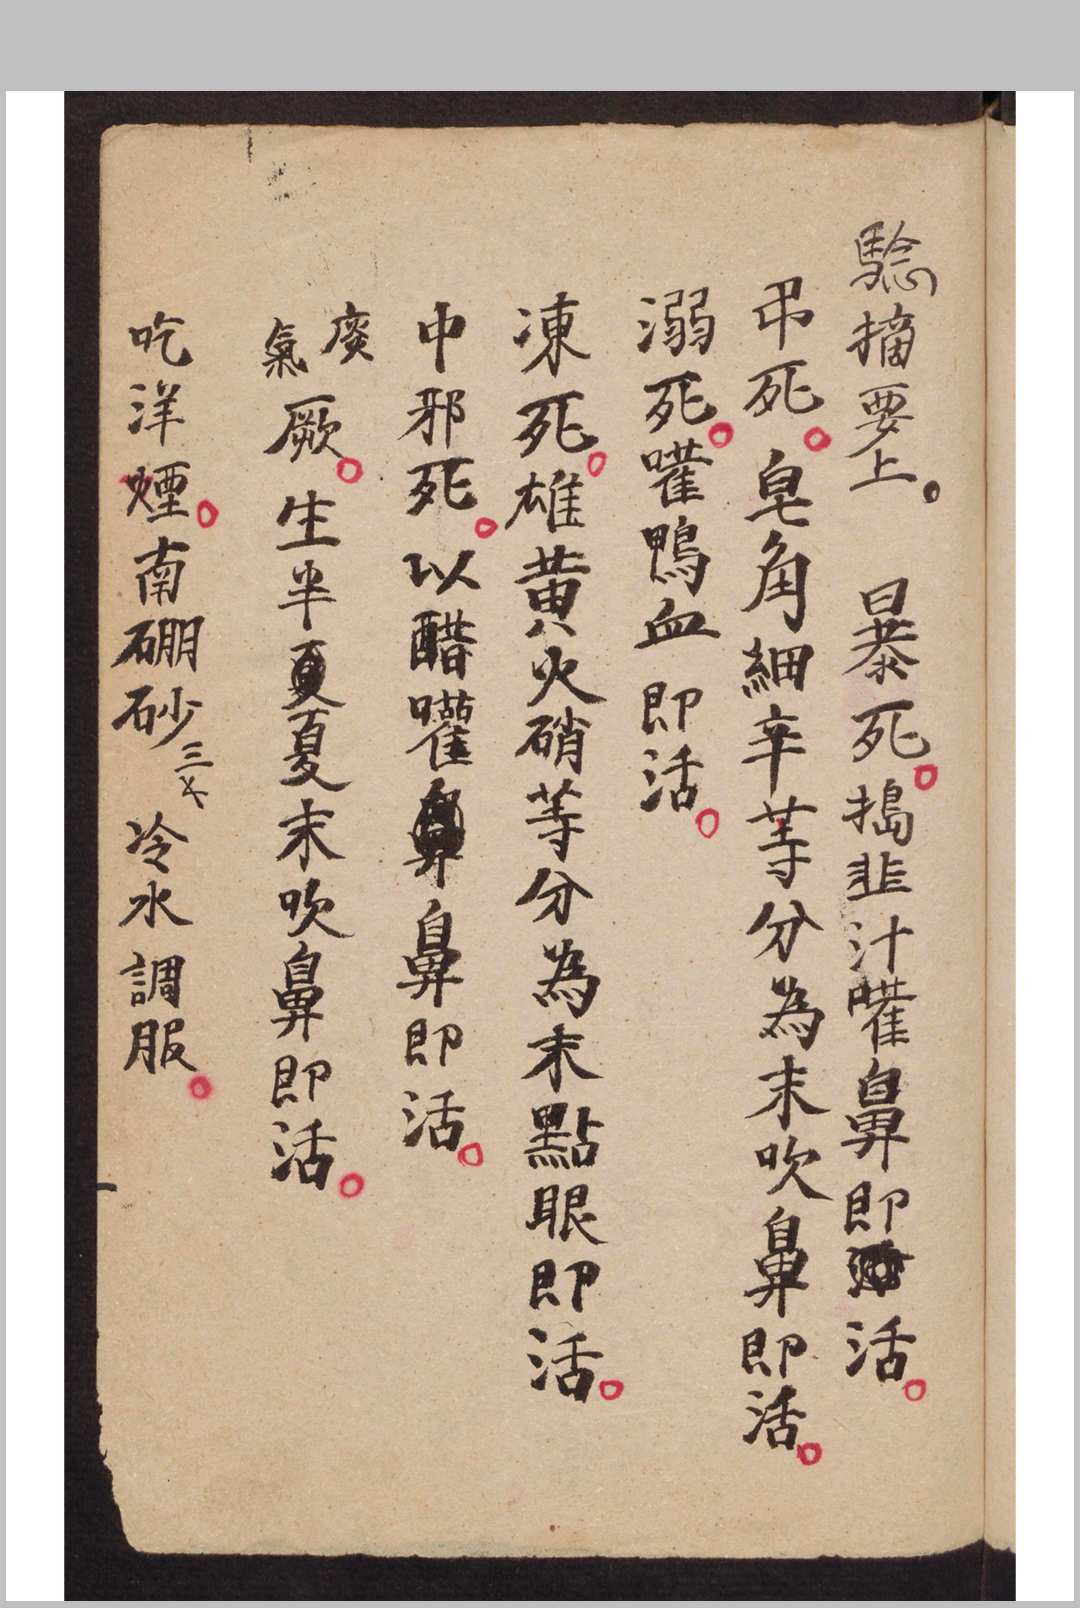 騐摘要上。 暴死。搗韭汁嚾鼻即活。
弔死。皂角細辛等分為末吹鼻即活。
溺死。嚾鴨血即活。
凍死。雄黃火硝等分為末點眼即活。
中邪死。以醋嚾鼻即活。
痰氣厥。生半夏夏末吹鼻即活。
吃洋煙。南硼砂三㐅冷水調服。